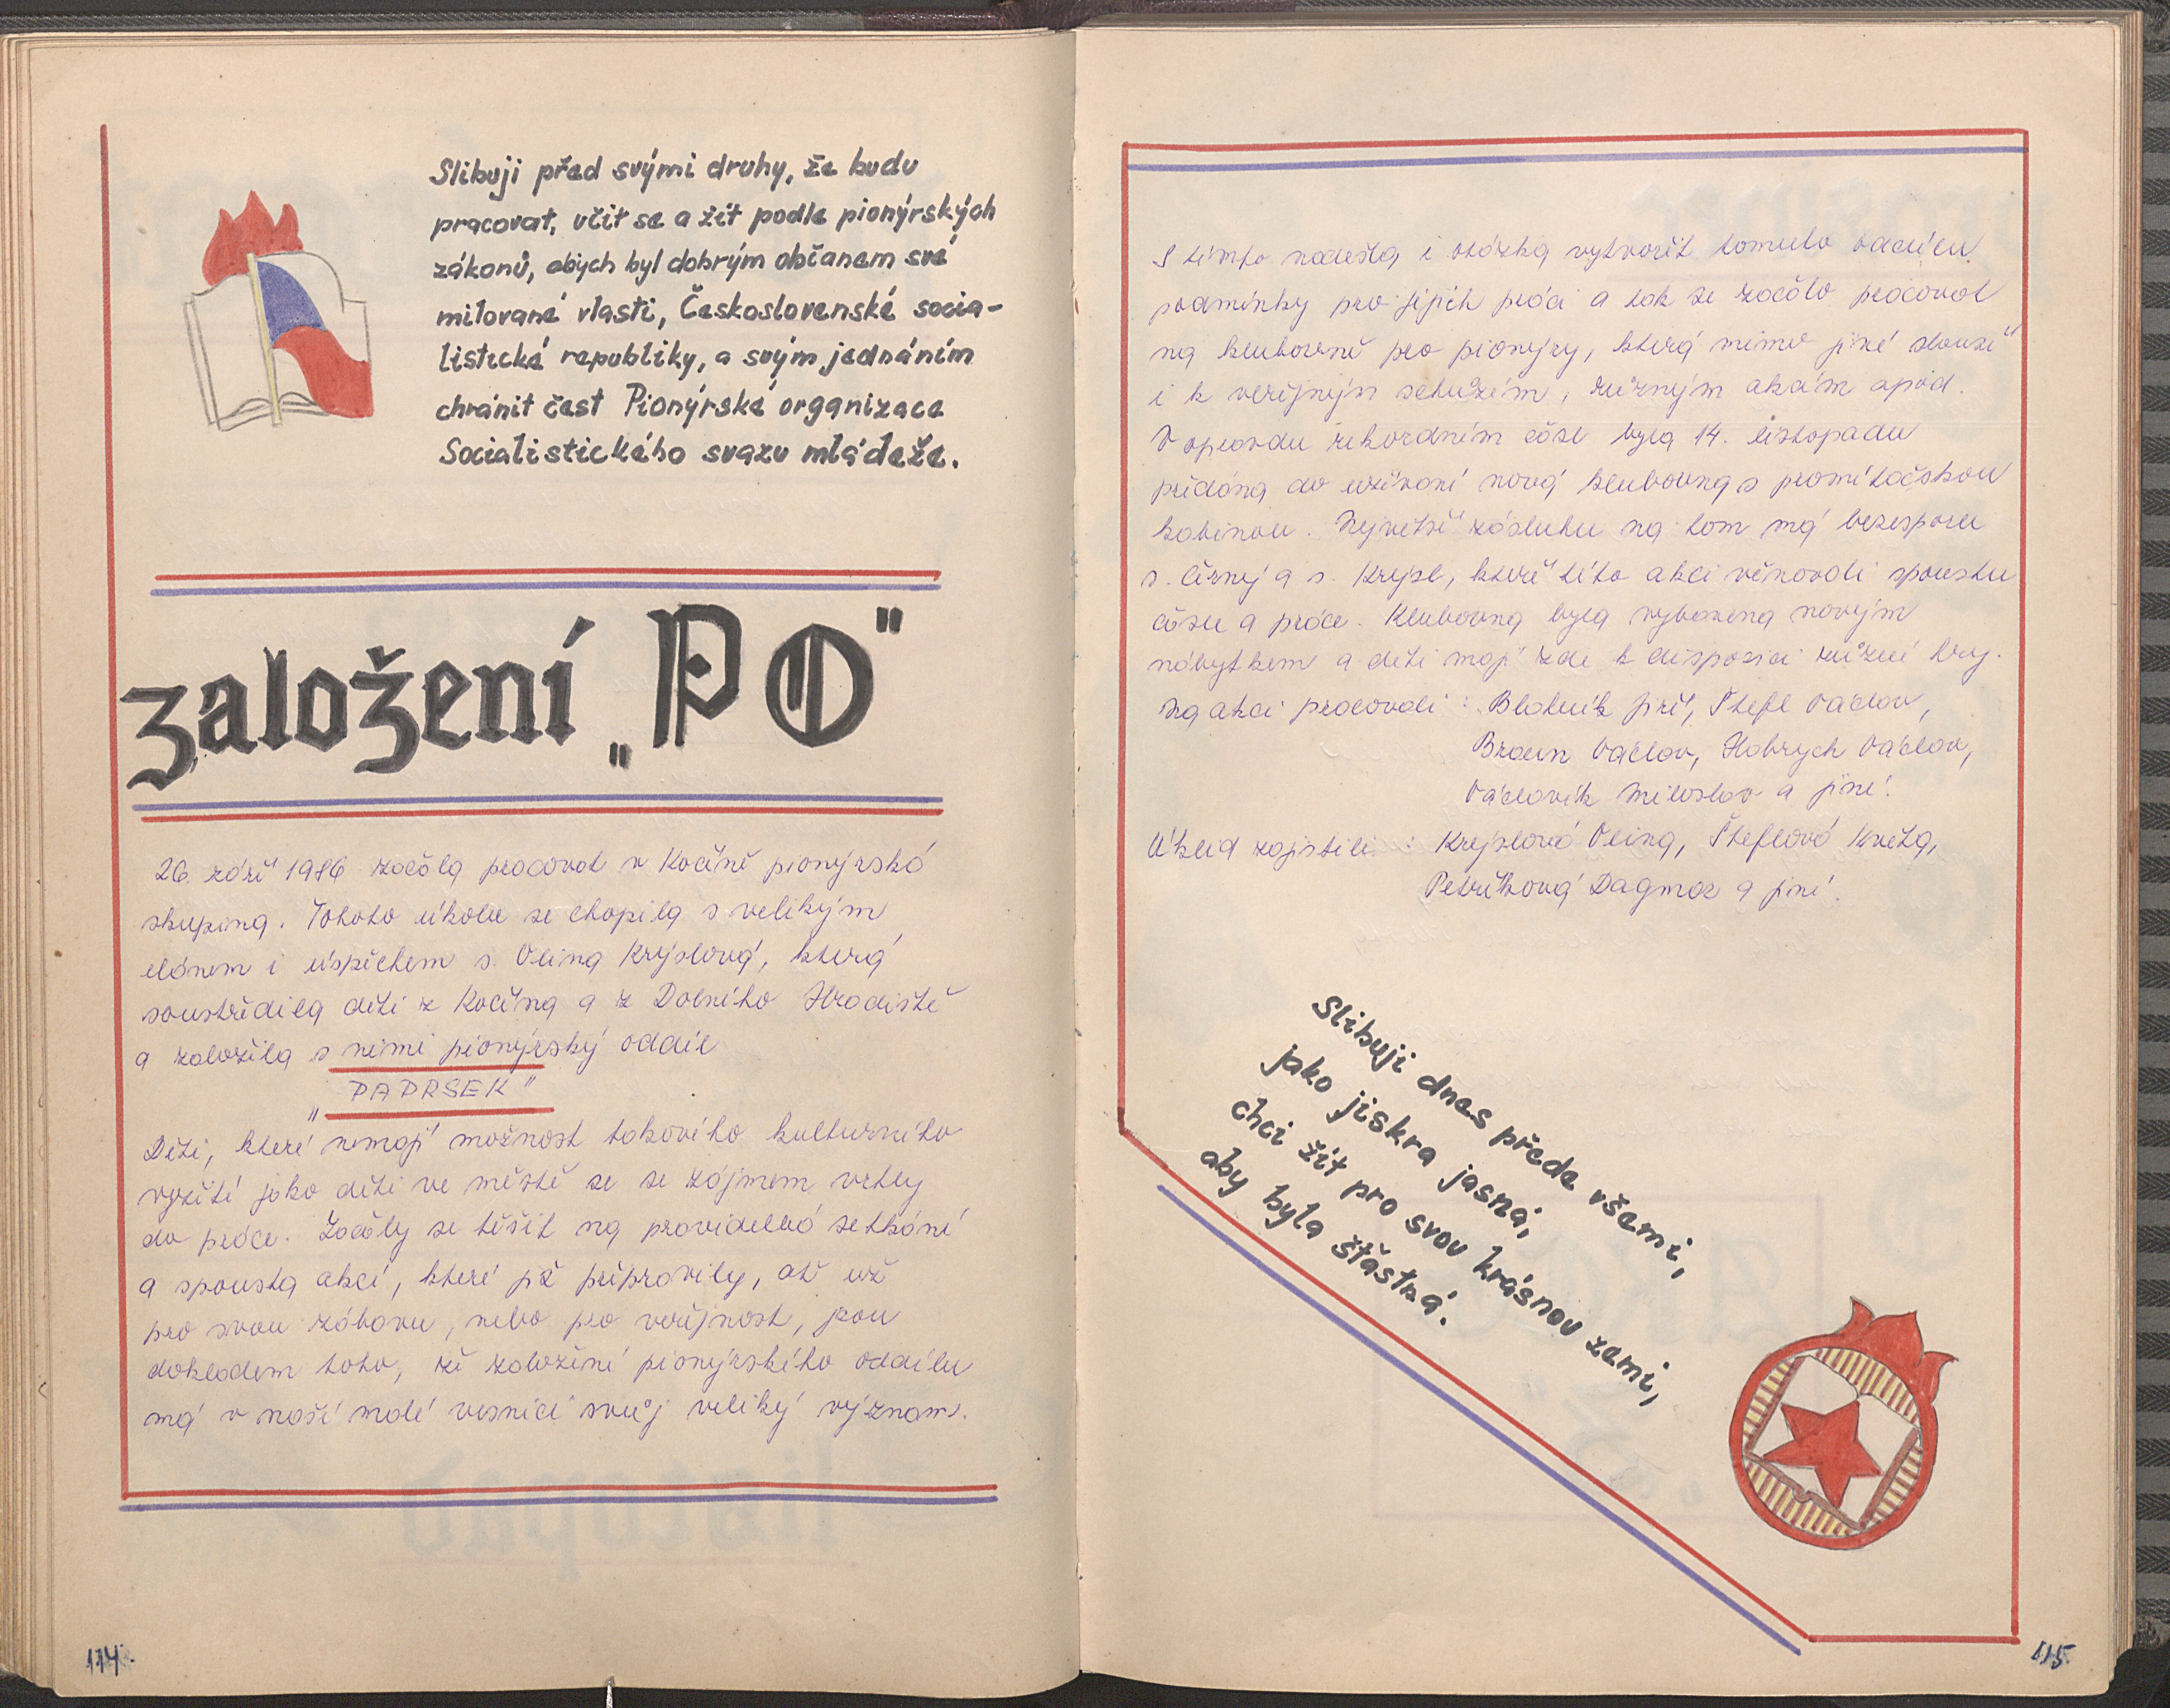 Slibuji před svými druhy, že budu
pracovat, učit se a žít podle pionýrských
zákonů, abych byl dobrým občanem své
milované vlasti, Československé socia-
listické republiky, a svým jednáním
chránit čest Pionýrské organizace
Socialistického svazu mládeže.
založení „PO"
26. září 1986 začala pracovat v Kočíně pionýrská
skupina. Tohoto úkolu se chopila s velikým
elánem i úspěchem s. Olina Krýslová, která
soustředila děti z Kočína a z Dolního Hradiště
a založila s nimi pionýrský oddíl
„PAPRSEK"
Děti, které nemají možnost takového kulturního
vyžití jako děti ve městě se se zájmem vrhly
do práce. Začaly se těšit na pravidelná setkání
a spousta akcí, které již připravily, ať už
pro svou zábavu, nebo pro veřejnost, jsou
dokladem toho, že založení pionýrského oddílu
má v naší malé vesnici svůj veliký význam.
114.
S tímto nadešla i otázka vytvořit tomuto oddílu
podmínky pro jejich práci a tak se začalo pracovat
na klubovně pro pionýry, která mimo jiné slouží
i k veřejným schůzím, různým akcím apod.
V opravdu rekordním čase byla 14. listopadu
předána do užívání nová klubovna s promítačskou
kabinou. Největší zásluhu na tom má bezesporu
s. Černý a s. Krýsl, kteří této akci věnovali spoustu
času a práce. Klubovna byla vybavena novým
nábytkem a děti mají zde k dispozici různé hry.
Na akci pracovali: Blatník Jiří, Štefl Václav,
Braun Václav, Habrych Václav,
Václavík Miloslav a jiní.
Úklid zajistili: Krýslová Olina, Šteflová Květa,
Petříková Dagmar a jiní.
Slibuji dnes přede všemi,
jako jiskra jasná,
chci žít pro svou krásnou zemi,
aby byla šťastná.
115.